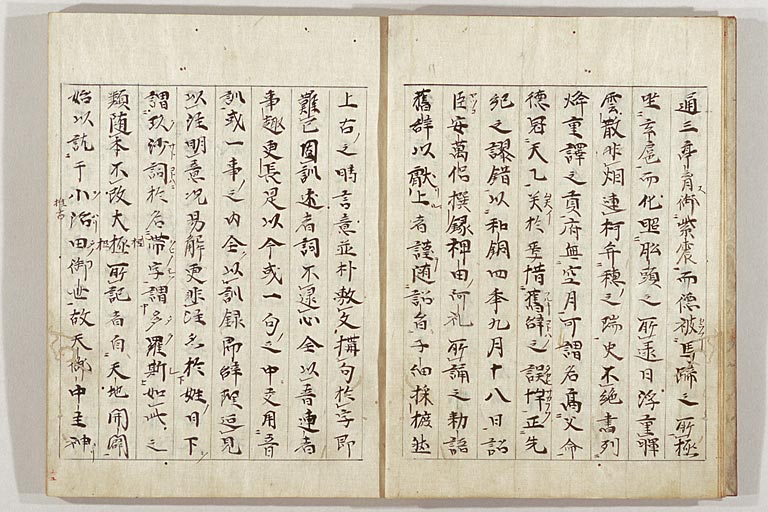 通三亭育御紫宸而德被馬蹄之所極
坐玄扈而化照船頭之所逮日浮重暉
雲散非烟連柯并穗之瑞史不絶書列
烽重譯之貢府無空月可謂名高文命
德冠天乙矣於焉惜舊辞之誤忤正先
紀之謬錯以和銅四年九月十八日詔
臣安萬侶撰録稗田阿礼所誦之勅語
舊辞以獻上者謹随詔旨子細採摭然
上古之時言意並朴敷文構句於字即
難已因訓述者詞不逮心全以音連者
事趣更長是以今或一句之中交用音
訓或一事之内全以訓録即辞理叵見
以注明意况易解更非注於姓日下
謂玖沙訶於名帶字謂多羅斯如此之
類随本不改大極所記者自天地開闢
始以訖于小治田御世故天御中主神